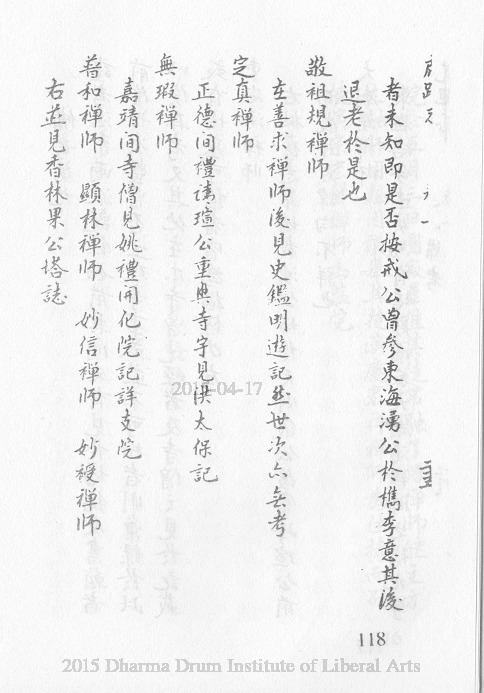 者未知即是否按戒公曾參東海湧公於檇李意其後
退老於是也
敬祖規禪師
在善求禪師後見史鑑明遊記然世次亦無考
定真禪師
正德間禮請瑄公重興寺宇見洪太保記
無瑕禪師
嘉靖間寺僧見姚禮開化院記詳支院
普和禪師 顯林禪師 妙信禪師 妙禐禪師
右並見香林果公塔誌
118
2015-04-17
2015 Dharma Drum Institute of Liberal Arts